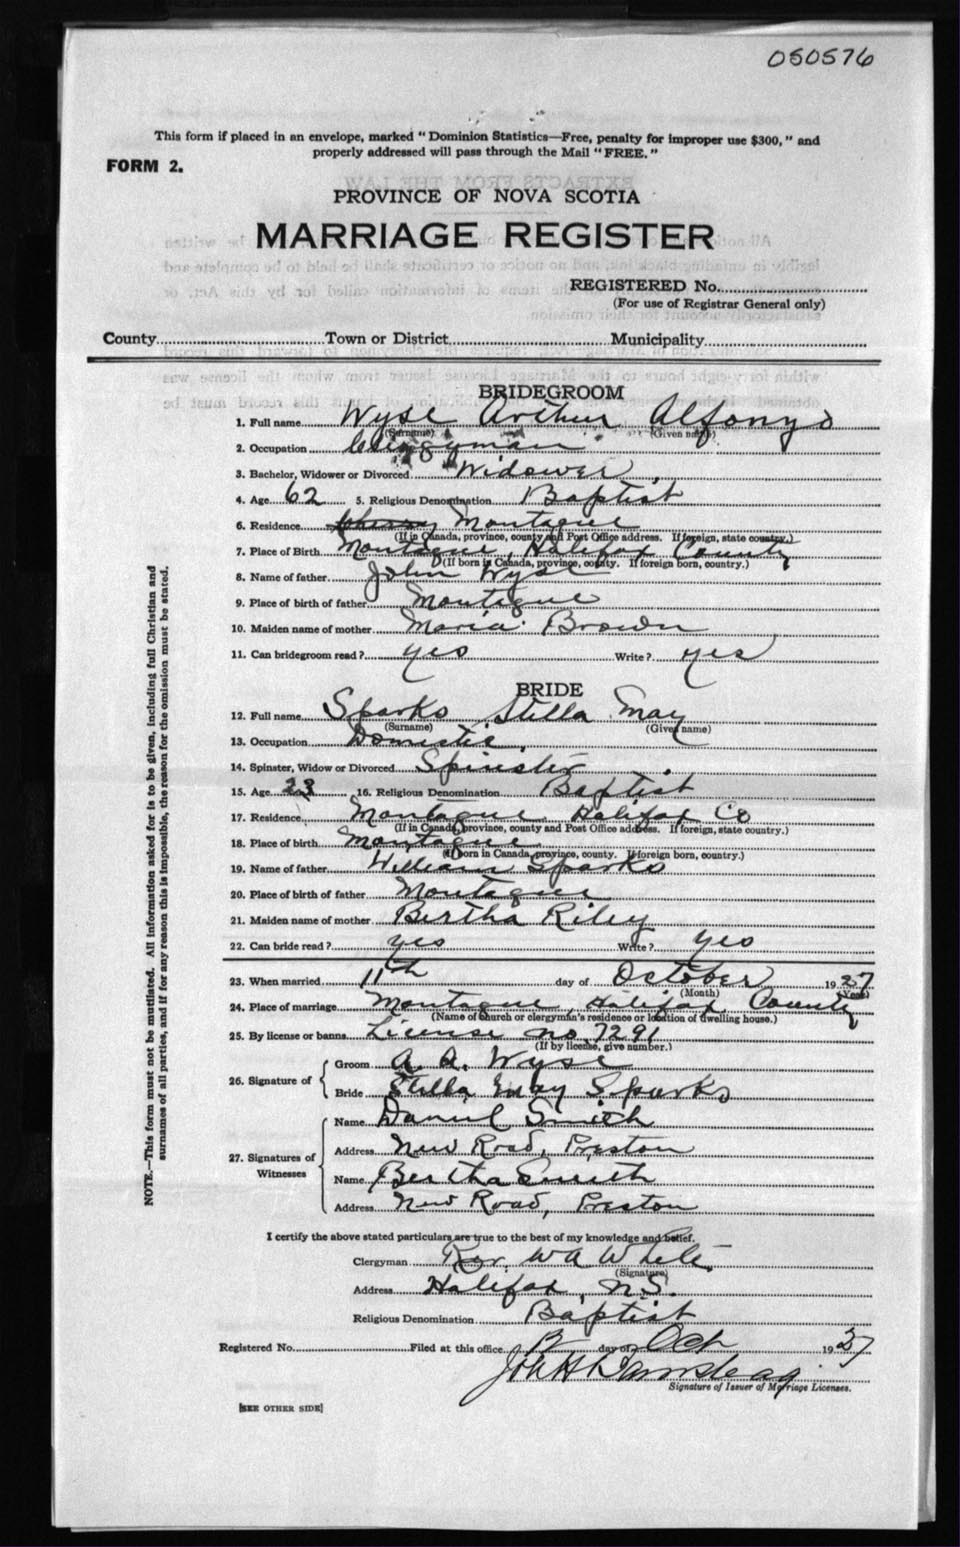 050576
This form if placed in an envelope, marked "Dominion Statistics—Free, penalty for improper use $300," and
properly addressed will pass through the Mail "FREE."
FORM 2.
PROVINCE OF NOVA SCOTIA
MARRIAGE REGISTER
REGISTERED No.
(For use of Registrar General only)
County Town or District Municipality
BRIDEGROOM
1. Full name Wyse Arthur Alfonzo
(Surname) (Given name)
2. Occupation Clergyman
3. Bachelor, Widower or Divorced Widower
4. Age 62 5. Religious Denomination Baptist
6. Residence Montague
(If in Canada, province, county and Post Office address. If foreign, state country.)
7. Place of Birth Montague, Halifax County
(If born in Canada, province, county. If foreign born, country.)
8. Name of father John Wyse
9. Place of birth of father Montague
10. Maiden name of mother Maria Brown
11. Can bridegroom read? yes Write? yes
BRIDE
12. Full name Sparks Stella May
(Surname) (Given name)
13. Occupation Domestic
14. Spinster, Widow or Divorced Spinster
15. Age 23 16. Religious Denomination Baptist
17. Residence Montague Halifax Co
(If in Canada, province, county and Post Office address. If foreign, state country.)
18. Place of birth Montague
(If born in Canada, province, county. If foreign born, country.)
19. Name of father William Sparks
20. Place of birth of father Montague
21. Maiden name of mother Bertha Riley
22. Can bride read? yes Write? yes
23. When married 11th day of October 1927
(Month) (Year)
24. Place of marriage Montague, Halifax County
(Name of church or clergyman's residence or location of dwelling house.)
25. By license or banns License no 7291
(If by license, give number.)
26. Signature of
Groom A. A. Wyse
Bride Stella May Sparks
27. Signatures of Witnesses
Name Daniel Smith
Address New Road, Preston
Name Bertha Smith
Address New Road, Preston
I certify the above stated particulars are true to the best of my knowledge and belief.
Clergyman Rev. W A White
(Signature)
Address Halifax, N.S.
Religious Denomination Baptist
Registered No. Filed at this office 12 day of Oct 1927
Signature of Issuer of Marriage Licenses.
[SEE OTHER SIDE]
NOTE.—This form must not be mutilated. All information asked for is to be given, including full Christian and
surnames of all parties, and if for any reason this is impossible, the reason for the omission must be stated.